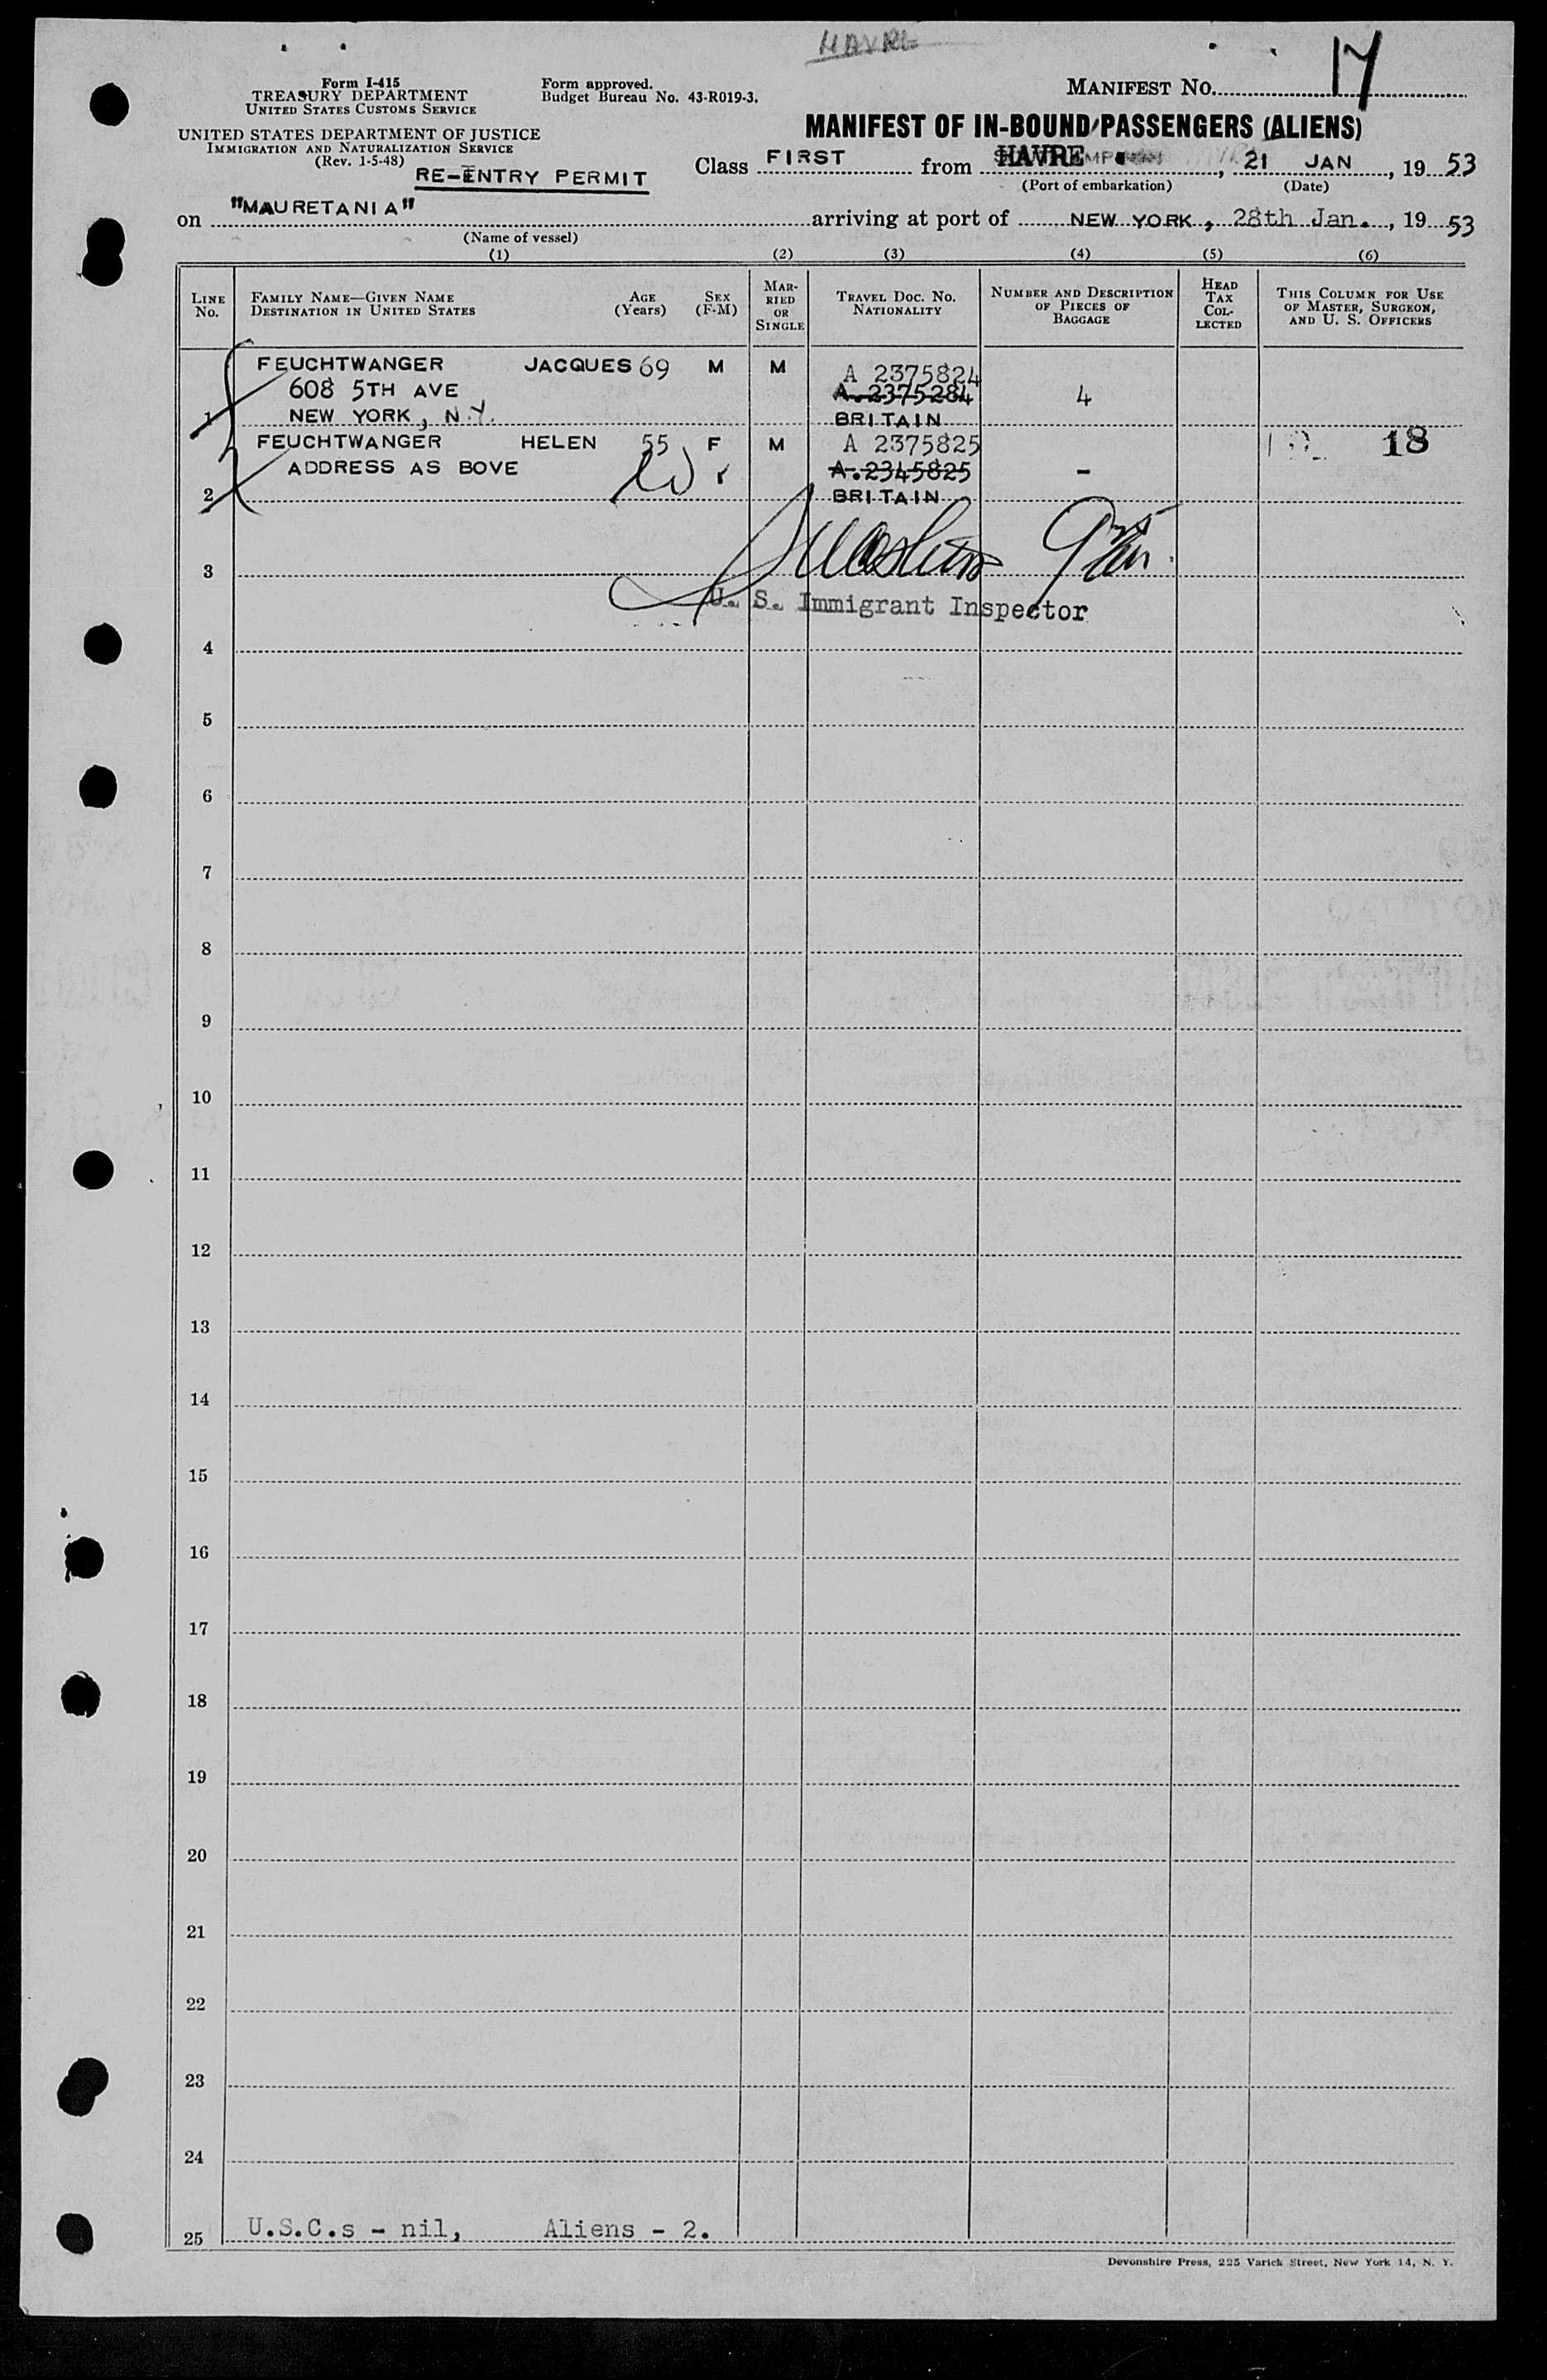 HAVRE
Form I-415
TREASURY DEPARTMENT
UNITED STATES CUSTOMS SERVICE
UNITED STATES DEPARTMENT OF JUSTICE
IMMIGRATION AND NATURALIZATION SERVICE
(Rev. 1-5-48)
RE-ENTRY PERMIT
Form approved.
Budget Bureau No. 43-R019-3.
MANIFEST NO. 17
MANIFEST OF IN-BOUND PASSENGERS (ALIENS)
Class FIRST from HAVRE, 21 JAN, 19 53
(Port of embarkation) (Date)
on "MAURETANIA" arriving at port of NEW YORK, 28th Jan., 19 53
(Name of vessel)
(1) (2) (3) (4) (5) (6)
LINE No.
FAMILY NAME—GIVEN NAME
DESTINATION IN UNITED STATES
AGE (Years)
SEX (F-M)
MAR-
RIED
OR
SINGLE
TRAVEL DOC. NO.
NATIONALITY
NUMBER AND DESCRIPTION
OF PIECES OF
BAGGAGE
HEAD
TAX
COL-
LECTED
THIS COLUMN FOR USE
OF MASTER, SURGEON,
AND U. S. OFFICERS
FEUCHTWANGER JACQUES 69 M M A 2375824
608 5TH AVE A.2375284 4
1 NEW YORK, N.Y. BRITAIN
FEUCHTWANGER HELEN 55 F M A 2375825 18
ADDRESS AS BOVE A.2345825 -
2 BRITAIN
3
U. S. Immigrant Inspector
4
5
6
7
8
9
10
11
12
13
14
15
16
17
18
19
20
21
22
23
24
25 U.S.C.s - nil, Aliens - 2.
Devonshire Press, 225 Varick Street, New York 14, N. Y.